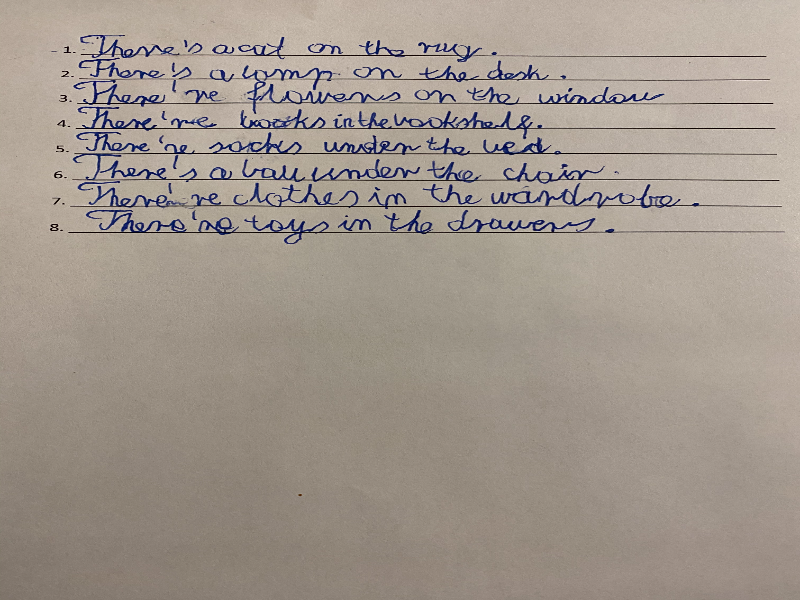 1. There's a cat on the rug.
2. There's a lamp on the desk.
3. There're flowers on the window
4. There're books in the bookshelf.
5. There're socks under the bed.
6. There's a ball under the chair.
7. There're clothes in the wardrobe.
8. There're toys in the drawers.